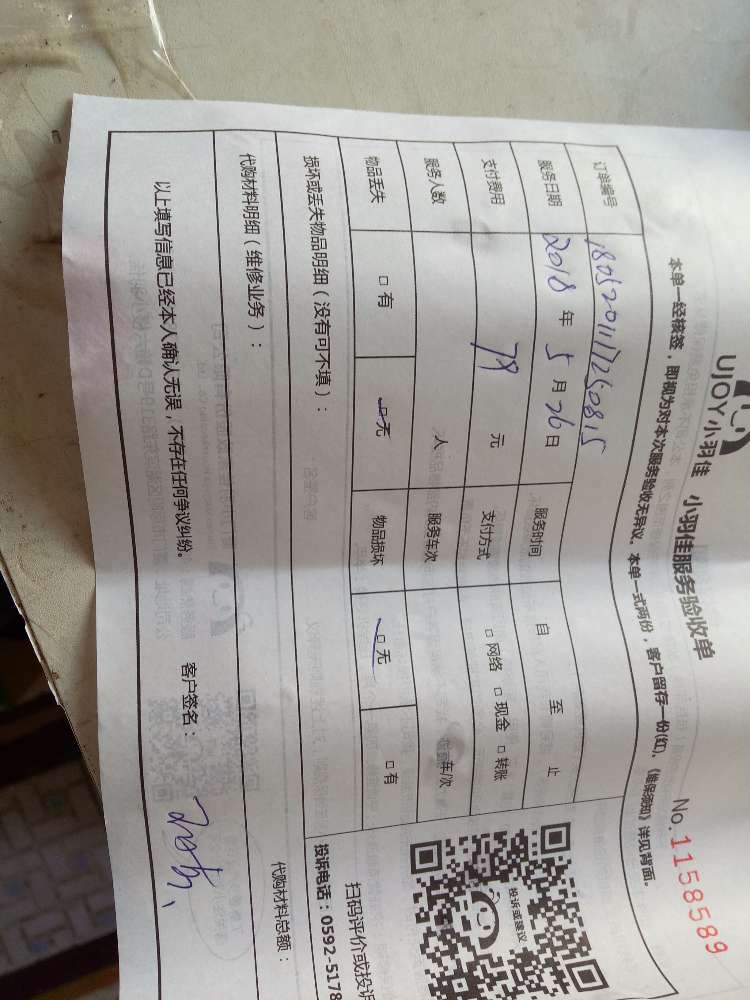 UJOY小羽佳 小羽佳服务验收单
No.1158589
本单一经核签，即视为对本次服务验收无异议。本单一式两份，客户留存一份(红)。《维保须知》详见背面。
订单编号 1805201117250815
服务日期 2018 年 5 月 26 日 服务时间 自 至 止
支付费用 79 元 支付方式 □ 网络 □ 现金 □ 转账
服务人数 人 服务车次 车/次
物品丢失 □ 有 □ 无 物品损坏 □ 无 □ 有
投诉或建议
扫码评价或投诉
投诉电话：0592-5178
损坏或丢失物品明细（没有可不填）：
代购材料明细（维修业务）： 代购材料总额：
以上填写信息已经本人确认无误，不存在任何争议纠纷。 客户签名：